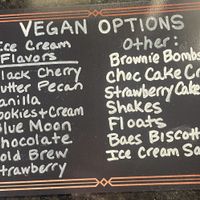 VEGAN OPTIONS
Ice Cream
Flavors
Black Cherry
Butter Pecan
Vanilla
Cookies + Cream
Blue Moon
Chocolate
Cold Brew
Strawberry
Other:
Brownie Bombs
Choc Cake Cr
Strawberry Cake
Shakes
Floats
Baes Biscott
Ice Cream Sa